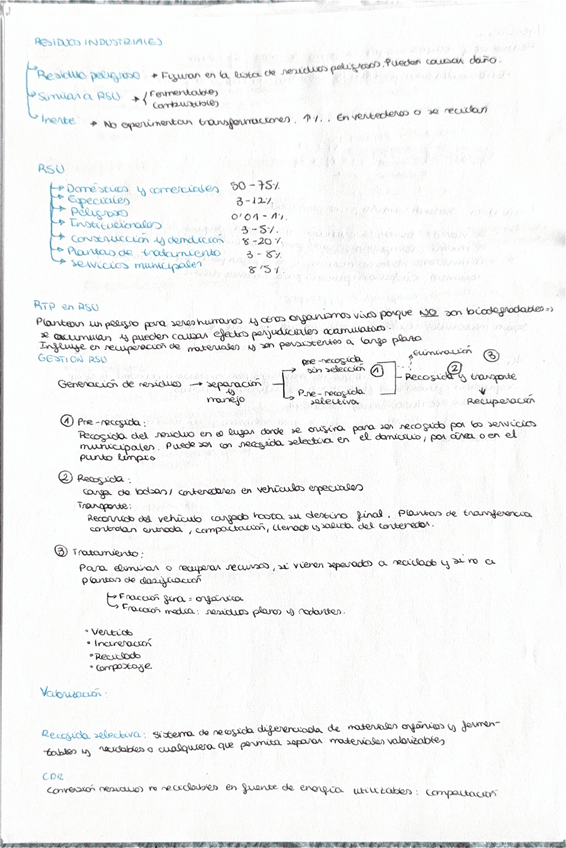 RESIDUOS INDUSTRIALES
Residuo peligroso → Figuran en la lista de residuos peligrosos. Pueden causar daño.
Similar a RSU → Fermentables
Combustibles
Inerte → No experimentan transformaciones. ↑%. En vertederos o se reciclan
RSU
Domésticos y comerciales 50-75%
Especiales 3-12%
Peligroso 0'01-1%
Institucionales 3-5%
Construcción y demolición 8-20%
Plantas de tratamiento 3-8%
Servicios municipales 8'5%
RTP en RSU
Plantean un peligro para seres humanos y otros organismos vivos porque NO son biodegradables =>
se acumulan y pueden causar efectos perjudiciales acumulativos.
Influye en recuperación de materiales y son persistentes a largo plazo
GESTIÓN RSU
Generación de residuos → separación y manejo
Pre-recogida sin selección ①
Pre-recogida selectiva
② Recogida y transporte
Eliminación ③
Recuperación
① Pre-recogida:
Recogida del residuo en el lugar donde se origina para ser recogido por los servicios
municipales. Puede ser con recogida selectiva en el domicilio, por área o en el
punto limpio
② Recogida:
carga de bolsas/contenedores en vehículos especiales
Transporte:
Recorrido del vehículo cargado hasta su destino final. Plantas de transferencia
controlan entrada, compactación, llenado y salida del contenedor.
③ Tratamiento:
Para eliminar o recuperar recursos, si vienen separados a reciclado y si no a
plantas de clasificación
Fracción fina = orgánica
Fracción media: residuos planos y rodantes.
• Vertido
• Incineración
• Reciclado
• Compostaje
Valorización:
Recogida selectiva: Sistema de recogida diferenciada de materiales orgánicos y fermen-
tables y reciclables o cualquiera que permita separar materiales valorizables
CDR
Conversión residuos no reciclables en fuente de energía utilizables: compactación